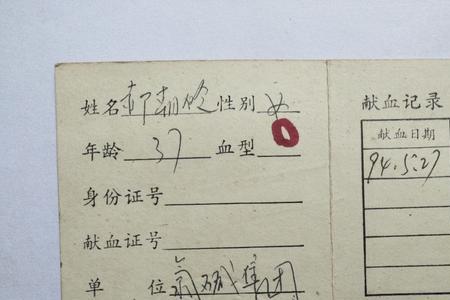 姓名 郝朝欣 性别 女
年龄 37 血型 O
身份证号
献血证号
单位 氯碱集团
献血记录
献血日期
94.5.27